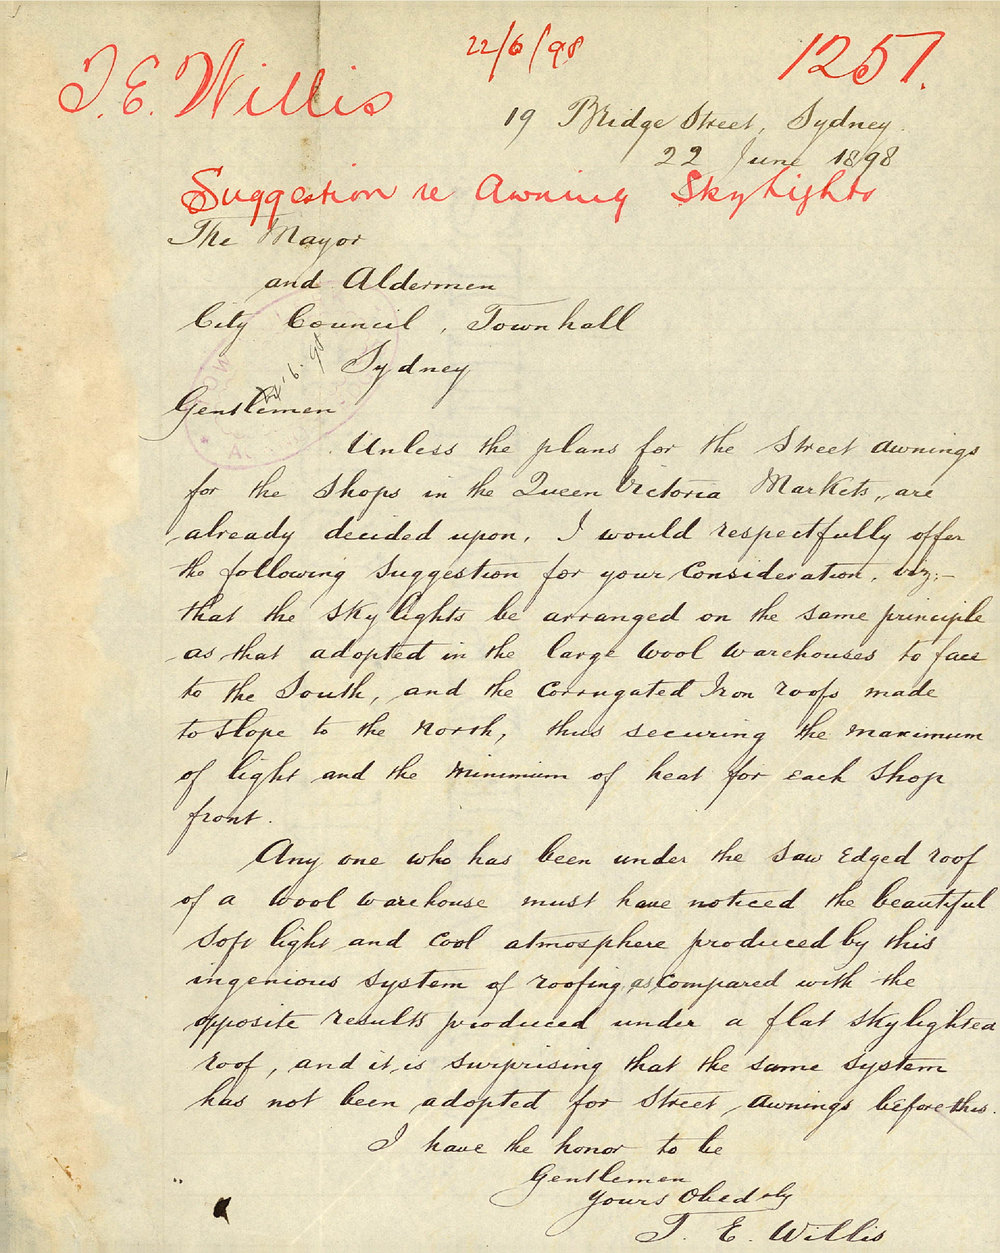 T. E. Willis
22/6/98
1257.
19 Bridge Street, Sydney.
22 June 1898
Suggestion re Awning Skylights
The Mayor
and Aldermen
City Council, Townhall
Sydney
22.6.98
Gentlemen
Unless the plans for the Street awnings
for the Shops in the Queen Victoria Markets, are
already decided upon, I would respectfully offer
the following Suggestion for your Consideration, viz:-
that the Skylights be arranged on the same principle
as that adopted in the large Wool Warehouses to face
to the South, and the Corrugated Iron roofs made
to Slope to the North, thus securing the maximum
of light and the minimum of heat for each Shop
front.
Any one who has been under the Saw Edged roof
of a Wool Warehouse must have noticed the beautiful
Soft light and Cool atmosphere produced by this
ingenious System of roofing, as Compared with the
opposite results produced under a flat Skylighted
roof, and it is surprising that the same System
has not been adopted for Street Awnings before this.
I have the honor to be
Gentlemen
Yours Obedtly
T. E. Willis